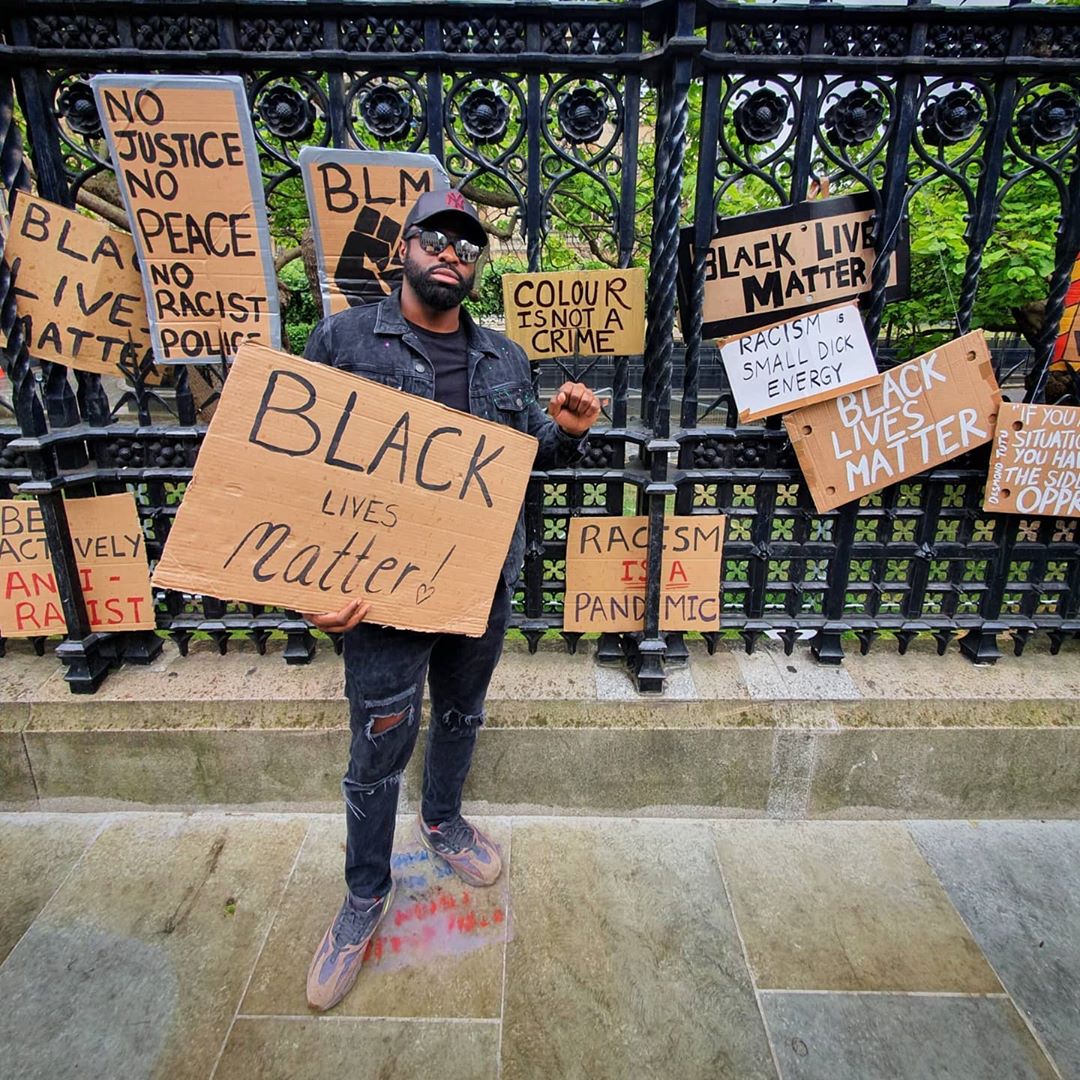 NO
JUSTICE
NO
PEACE
NO
RACIST
POLICE
BLM
BLAC
LIVE
MATTE
COLOUR
IS NOT A
CRIME
BLACK LIVE
MATTER
RACISM IS
SMALL DICK
ENERGY
BLACK
LIVES
MATTER
DESMOND TUTU
"IF YOU
SITUATIO
YOU HA
THE SIDE
OPPR
BLACK
LIVES
Matter!
BE
ACTIVELY
ANTI-
RACIST
RACISM
IS A
PANDEMIC